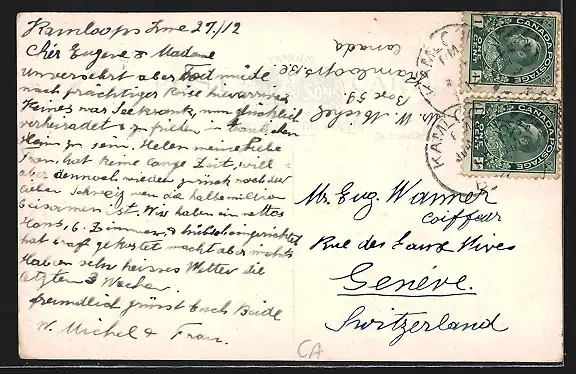 Kamloops June 27./12
Chér Eugene & Madame
Unversehrt aber Tod müde
nach prächtiger Reise hier
Keines war Seekrank, nun glücklich
verheiratet & zufrieden in
Heim zu sein. Helen meine liebe
Frau, hat keine lange Zeit, will
aber dennoch wieder zurück nach der
lieben Schweiz wen die halbe million
beisamen ist. Wir haben ein nettes
Haus, 6. Zimmer, & hübsch eingerichtet
hat gekostet macht aber nichts
Haben sehr heisses Wetter die
letzten 3 Wochen.
freundlich grüsst Euch Beide
W. Michel & Frau.
W. Michel
Box 59.
Kamloops. B.C
Canada
CANADA POSTAGE
1 1
ONE CENT
CANADA POSTAGE
1 1
ONE CENT
KAMLOOPS
Mr. Eug. Wanner
coiffeur
Rue des Eaux Vives
Genéve.
Switzerland
CA